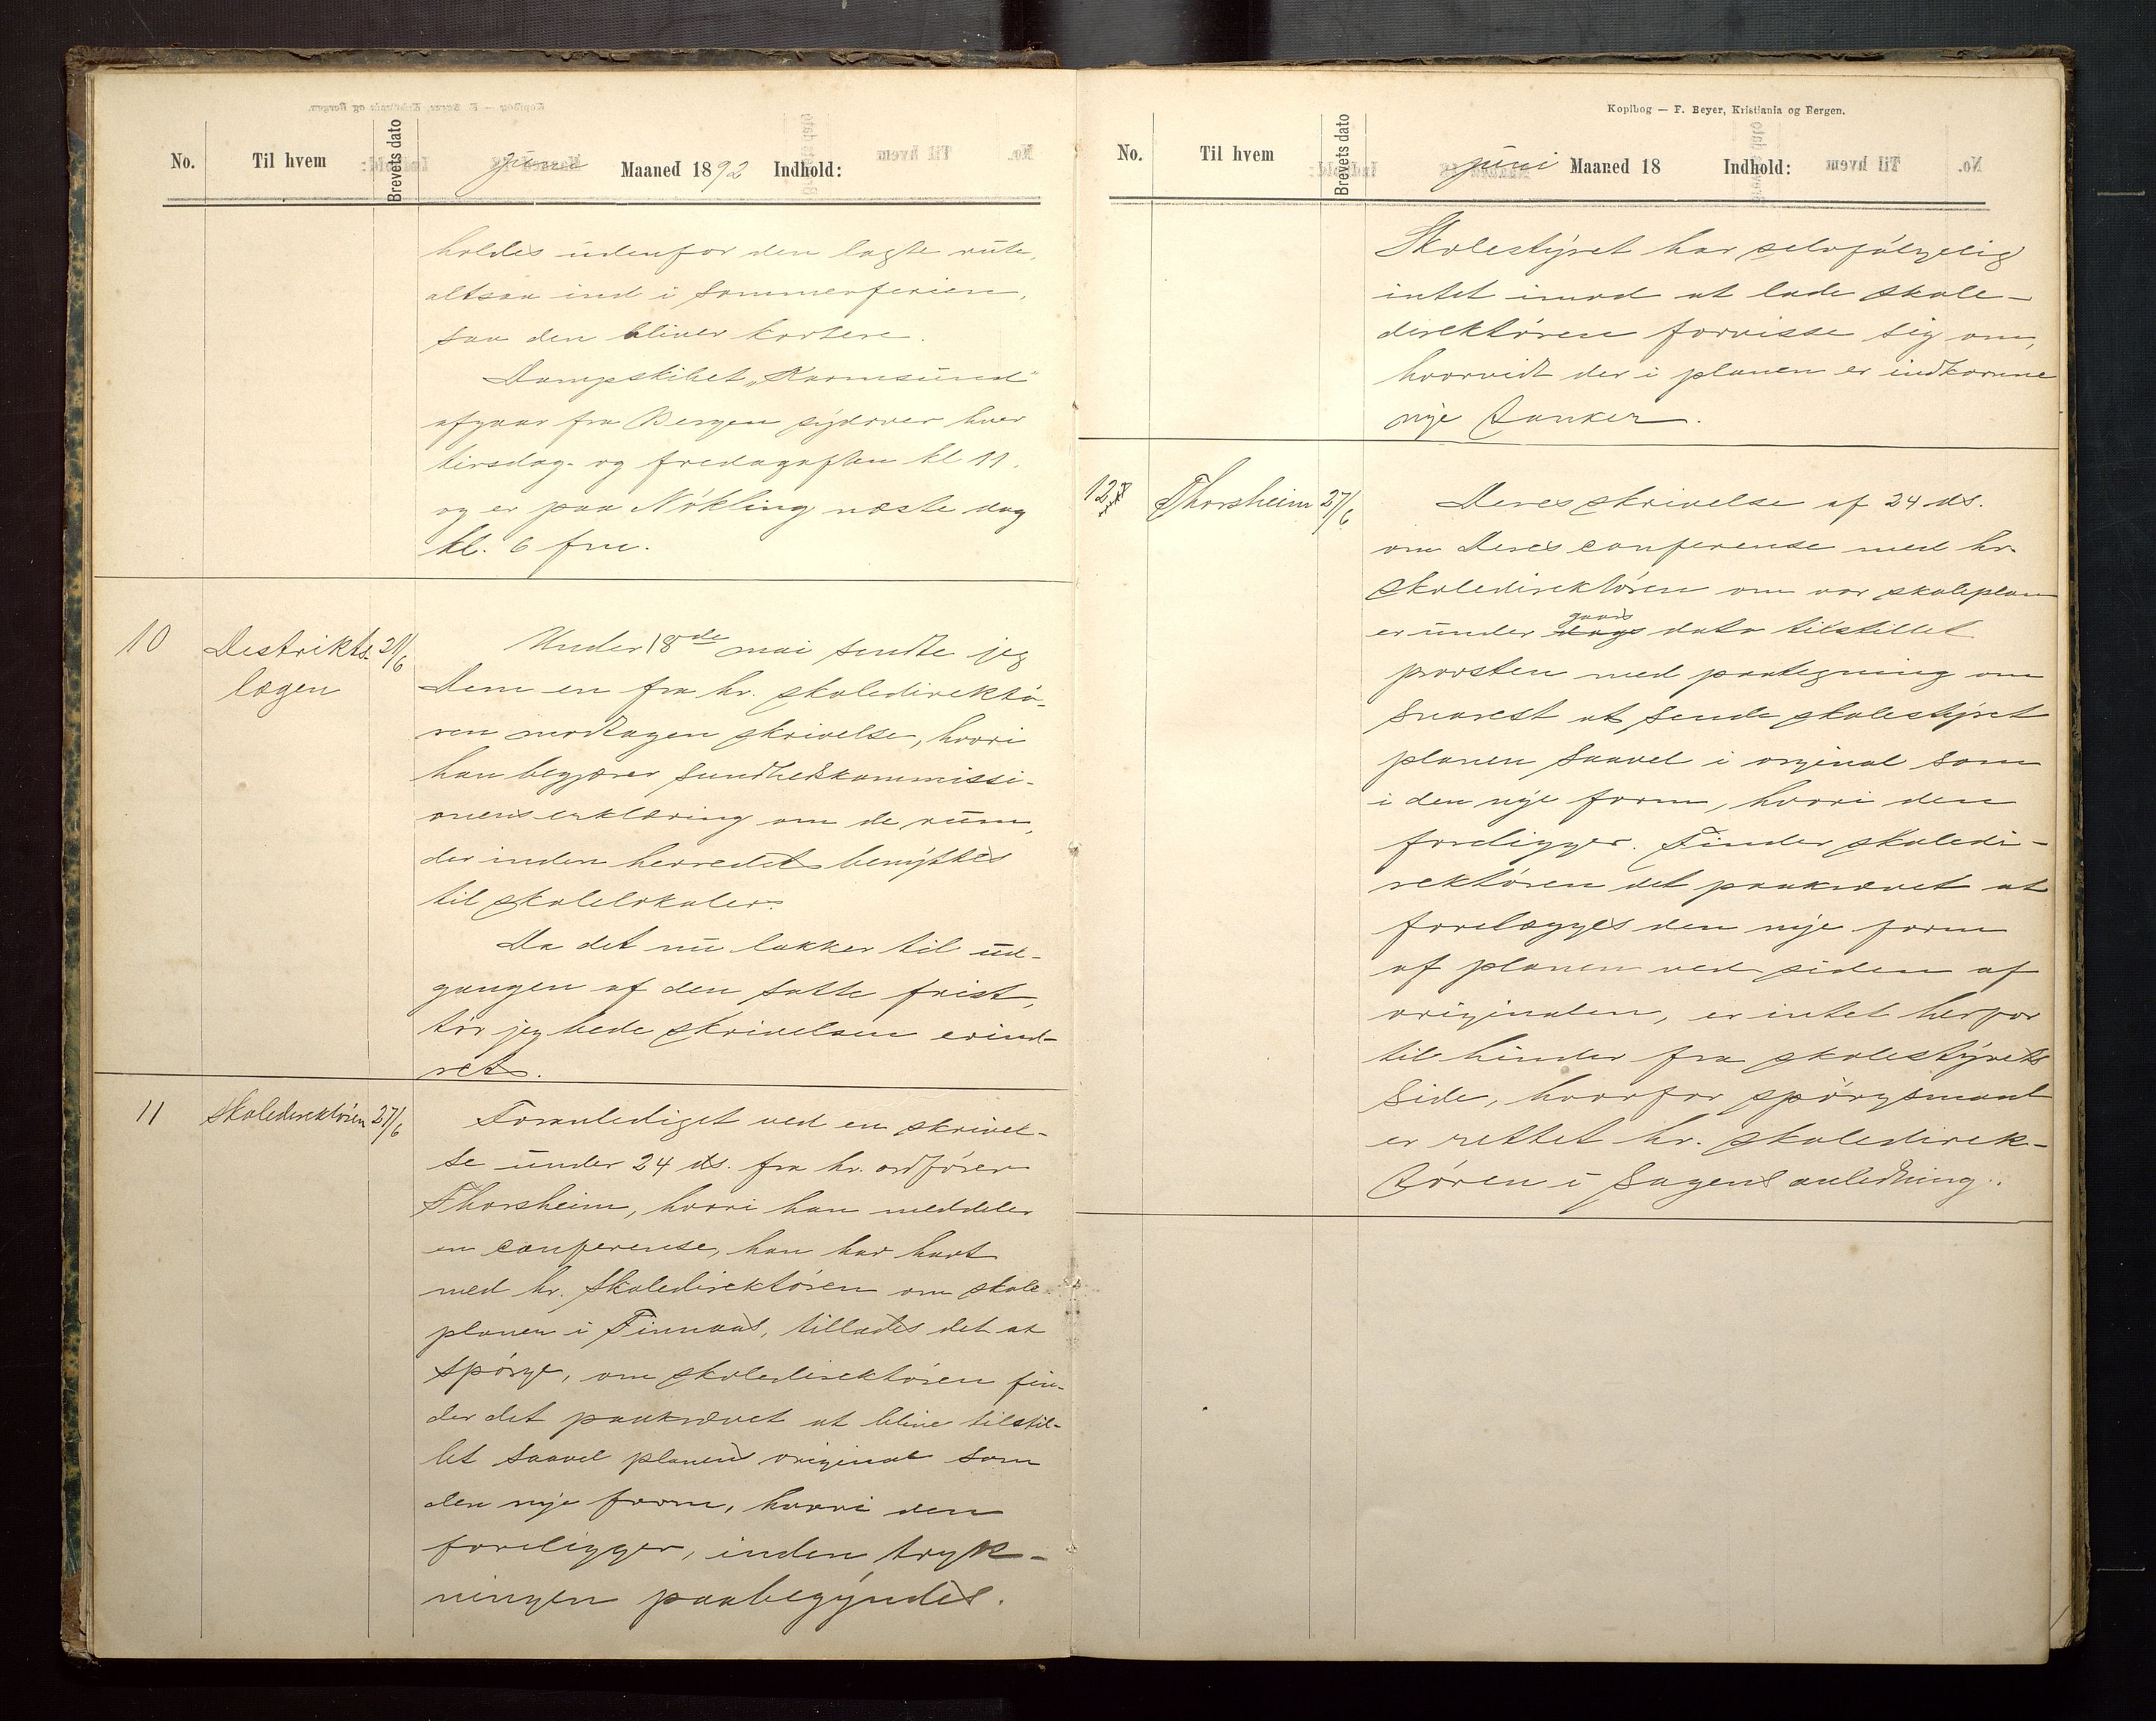 No. Til hvem Brevets dato Maaned 1892 Indhold:
holdes udenfor den lagte rute,
altsaa ind i sommerferien,
saa den bliver kortere.
Dampskibet „Karmsund"
afgaar fra Bergen sydover hver
tirsdag- og fredagaften kl 11,
og er paa Nökling næste dag
kl. 6 fm.
10 Destrikts- 21/6
lægen
Under 18de mai sendte jeg
Dem en fra hr. skoledirektö-
ren modtagen skrivelse, hvori
han begjærer sundhedskommissi-
onens erklæring om de rum,
der inden herredet benyttes
til skolelokaler.
Da det nu lakker til ud-
gangen af den satte frist,
tör jeg bede skrivelsen erind-
ret.
11 Skoledirektören 27/6
Foranlediget ved en skrivel-
se under 24 ds. fra hr. ordförer
Thorsheim, hvori han meddeler
en conferense, han har havt
med hr. Skoledirektören om skole
planen i Finnaas, tillades det at
spörge, om skoledirektören fin-
der det paakrævet at blive tilstil-
let saavel planens original som
den nye form, hvori den
foreligger, inden tryk-
ningen paabegyndes.
Kopibog — F. Beyer, Kristiania og Bergen.
No. Til hvem Brevets dato juni Maaned 18 Indhold:
Skolestyret har selvfölgelig
intet imod at lade skole-
direktören forvisse sig om,
hvorvidt der i planen er indkomne
nye tanker.
12 Thorsheim 27/6
Deres skrivelse af 24 ds.
om Deres conferense med hr.
skoledirektören om vor skoleplan
gaars
er under dags dato tilstillet
provsten med paategning om
snarest at sende skolestyret
planen saavel i orginal som
i den nye form, hvori den
foreligger. Finder skoledi-
rektören det paakrævet at
forelægges den nye form
af planen ved siden af
originalen, er intet herfor
til hinder fra skolestyrets
side, hvorfor spörgsmaal
er rettet hr. skoledirek-
tören i sagens anledning.